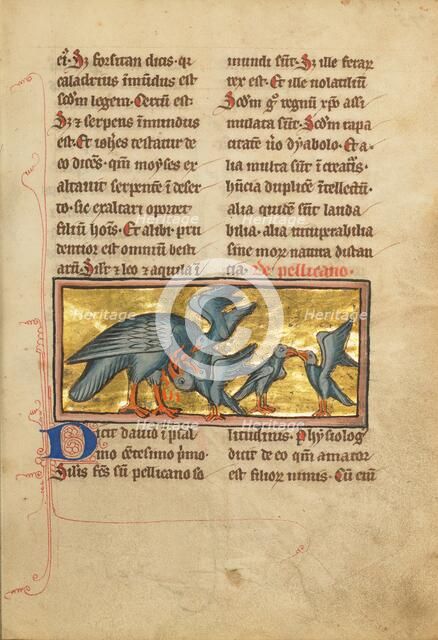 et. Sz forsitan dicis. qr
caladrius inmundus est
scdm legem. Certum est.
Sz & serpens inmundus
est. Et iohes testatur de
eo dicens. qm moyses ex
altauit serpente in deser
to. sic exaltari oportet
filiu hois. Et alibi pru
dentior est omnium besti
aru. Silr & leo & aquila
mundi sunt. Sz ille ferar
rex est. Et ille uolatiliu
Scdm g regnum xpo assi
mulata sunt. Scdm rapa
citatem u dyabolo. Et a
lia multa sunt in creatis
hncia duplice intellectu.
alia quide sunt lauda
bilia. alia uituperabilia
siue mor natura distan
cia. De pellicano.
Dicit dauid in psal
mo centesimo primo.
Silis fcs su pellicano so
litudinis. Physiolog
dicit de eo qm amator
est filior nimis. Cu
Heritage
Heritage
Heritage
Heritage
Heritage